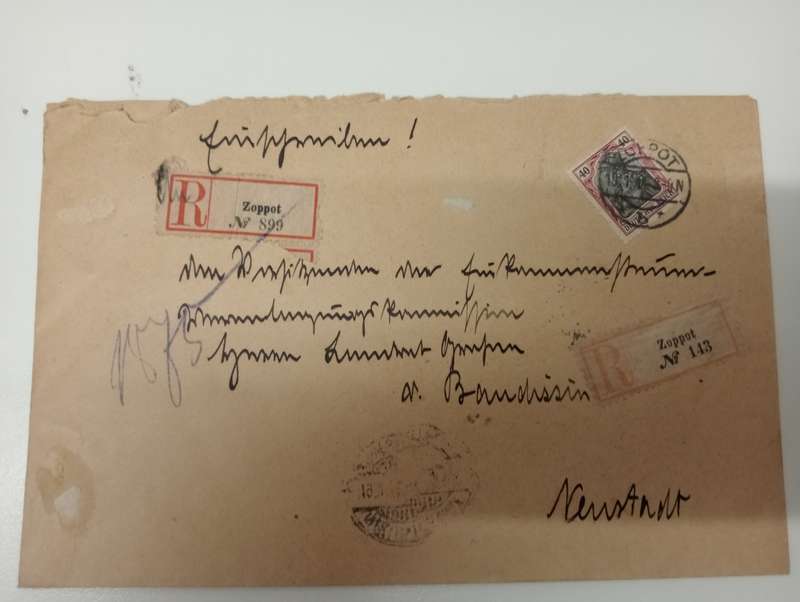 Einschreiben!
40 40
ZOPPOT
R Zoppot
№ 899
den Vorsitzenden der Einkommensteuer-
Veranlagungskommission
Herrn Landrat Grafen
v. Baudissin
R Zoppot
№ 143
Neustadt